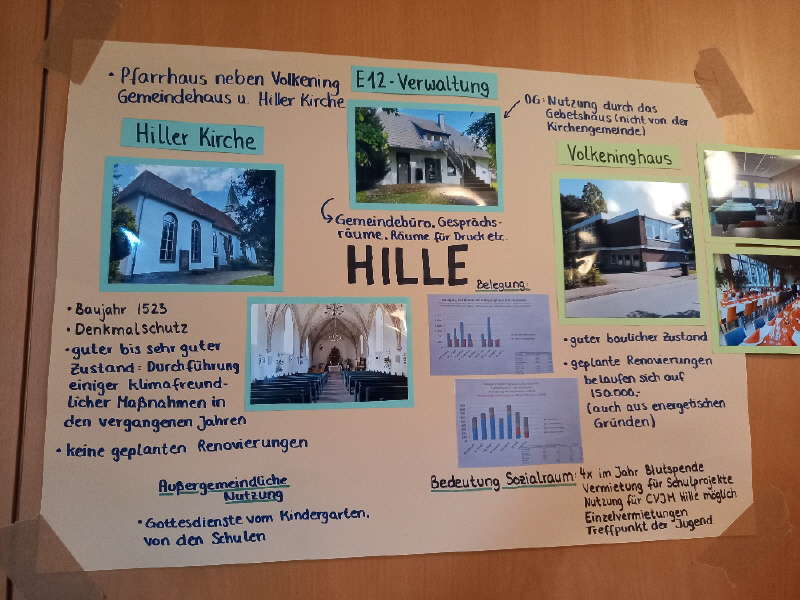 • Pfarrhaus neben Volkening
Gemeindehaus u. Hiller Kirche
E12-Verwaltung
OG: Nutzung durch das
Gebetshaus (nicht von der
Kirchengemeinde)
Hiller Kirche
Volkeninghaus
Gemeindebüro, Gesprächs-
räume, Räume für Druck etc.
HILLE
Belegung:
• Baujahr 1523
• Denkmalschutz
• guter bis sehr guter
Zustand: Durchführung
einiger klimafreund-
licher Maßnahmen in
den vergangenen Jahren
• keine geplanten Renovierungen
• guter baulicher Zustand
• geplante Renovierungen
belaufen sich auf
150.000,-
(auch aus energetischen
Gründen)
Außergemeindliche
Nutzung
• Gottesdienste vom Kindergarten,
von den Schulen
Bedeutung Sozialraum: 4x im Jahr Blutspende
Vermietung für Schulprojekte
Nutzung für CVJM Hille möglich
Einzelvermietungen
Treffpunkt der Jugend